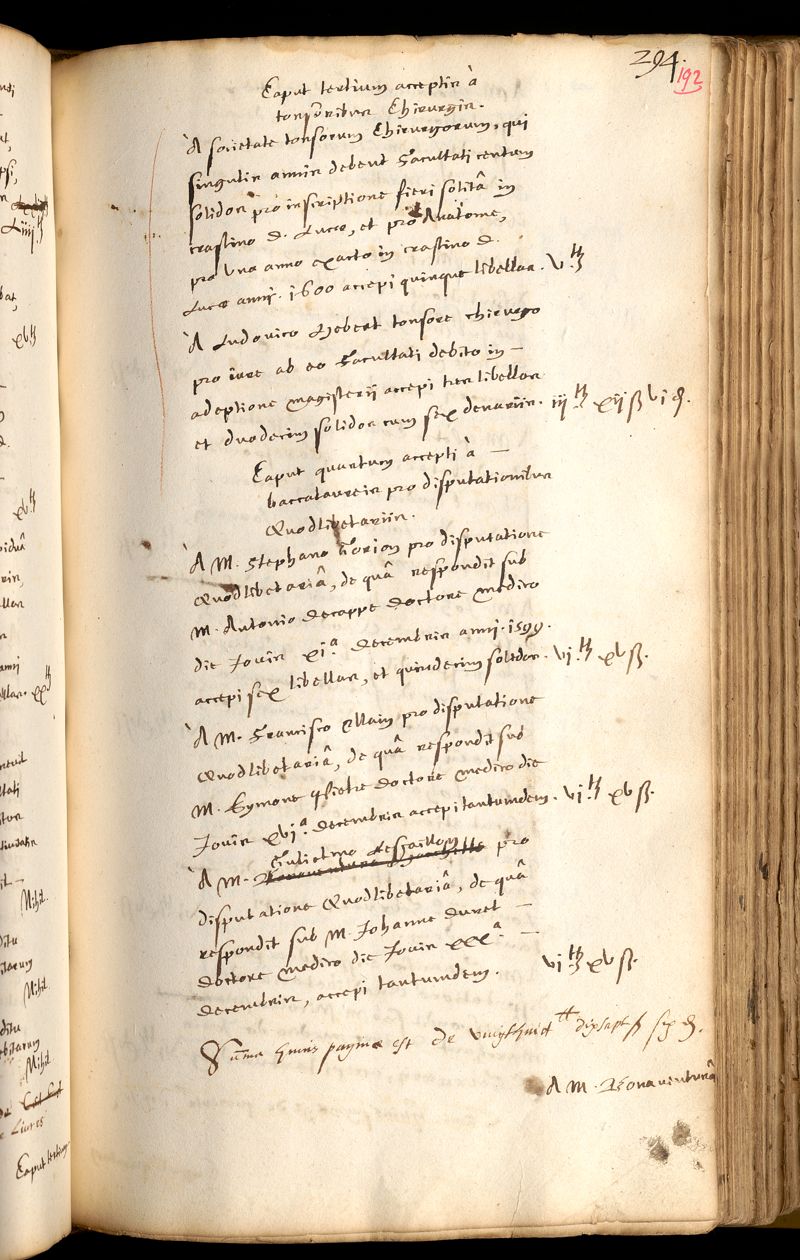 294.
192
Caput tertium acceptis à
tonsoribus Chirurgis.
A societate tonsorum Chirurgorum, qui
singulis annis debent Facultati centum
solidos pro inscriptione fieri solitâ in
crastino D. Lucæ, et pro Anatome,
pro uno anno exacto in crastino D.
Lucæ anni. 1600 accepi quinque libellas. v.tt
A Ludovico Hebert tonsore chirurgo
pro iure ab eo Facultati debito in –
adeptione magisterii accepi tres libellas
et duodecim solidos cum sex denariis. iij tt xij ß vi d.
Caput quartum accepti à –
baccalaureis pro disputationibus
Quodlibetariis.
A M. Stephano Gorion pro disputatione
Quodlibetariâ, de quâ respondit sub
M. Antonio Decappe doctore medico
die Jovis xi.a decembris anni. 1599.
accepi sex libellas, et quindecim solidos. vi.tt xv ß.
A M. Francisco Allain pro disputatione
Quodlibetariâ, de quâ respondit sub
M. Eymone doctore medico die
Jovis xvi.a decembris accepi tantumdem. vi tt xv ß.
Gulielmo
A M. pro
disputatione Quodlibetariâ, de quâ
respondit sub M. Johanne Duret –
doctore medico die Jovis xxx.a –
decembris, accepi tantumdem. vi tt xv ß.
Suma huius paginæ est de vingthuit tt dixsept ß six d.
A M. Bonaventurâ